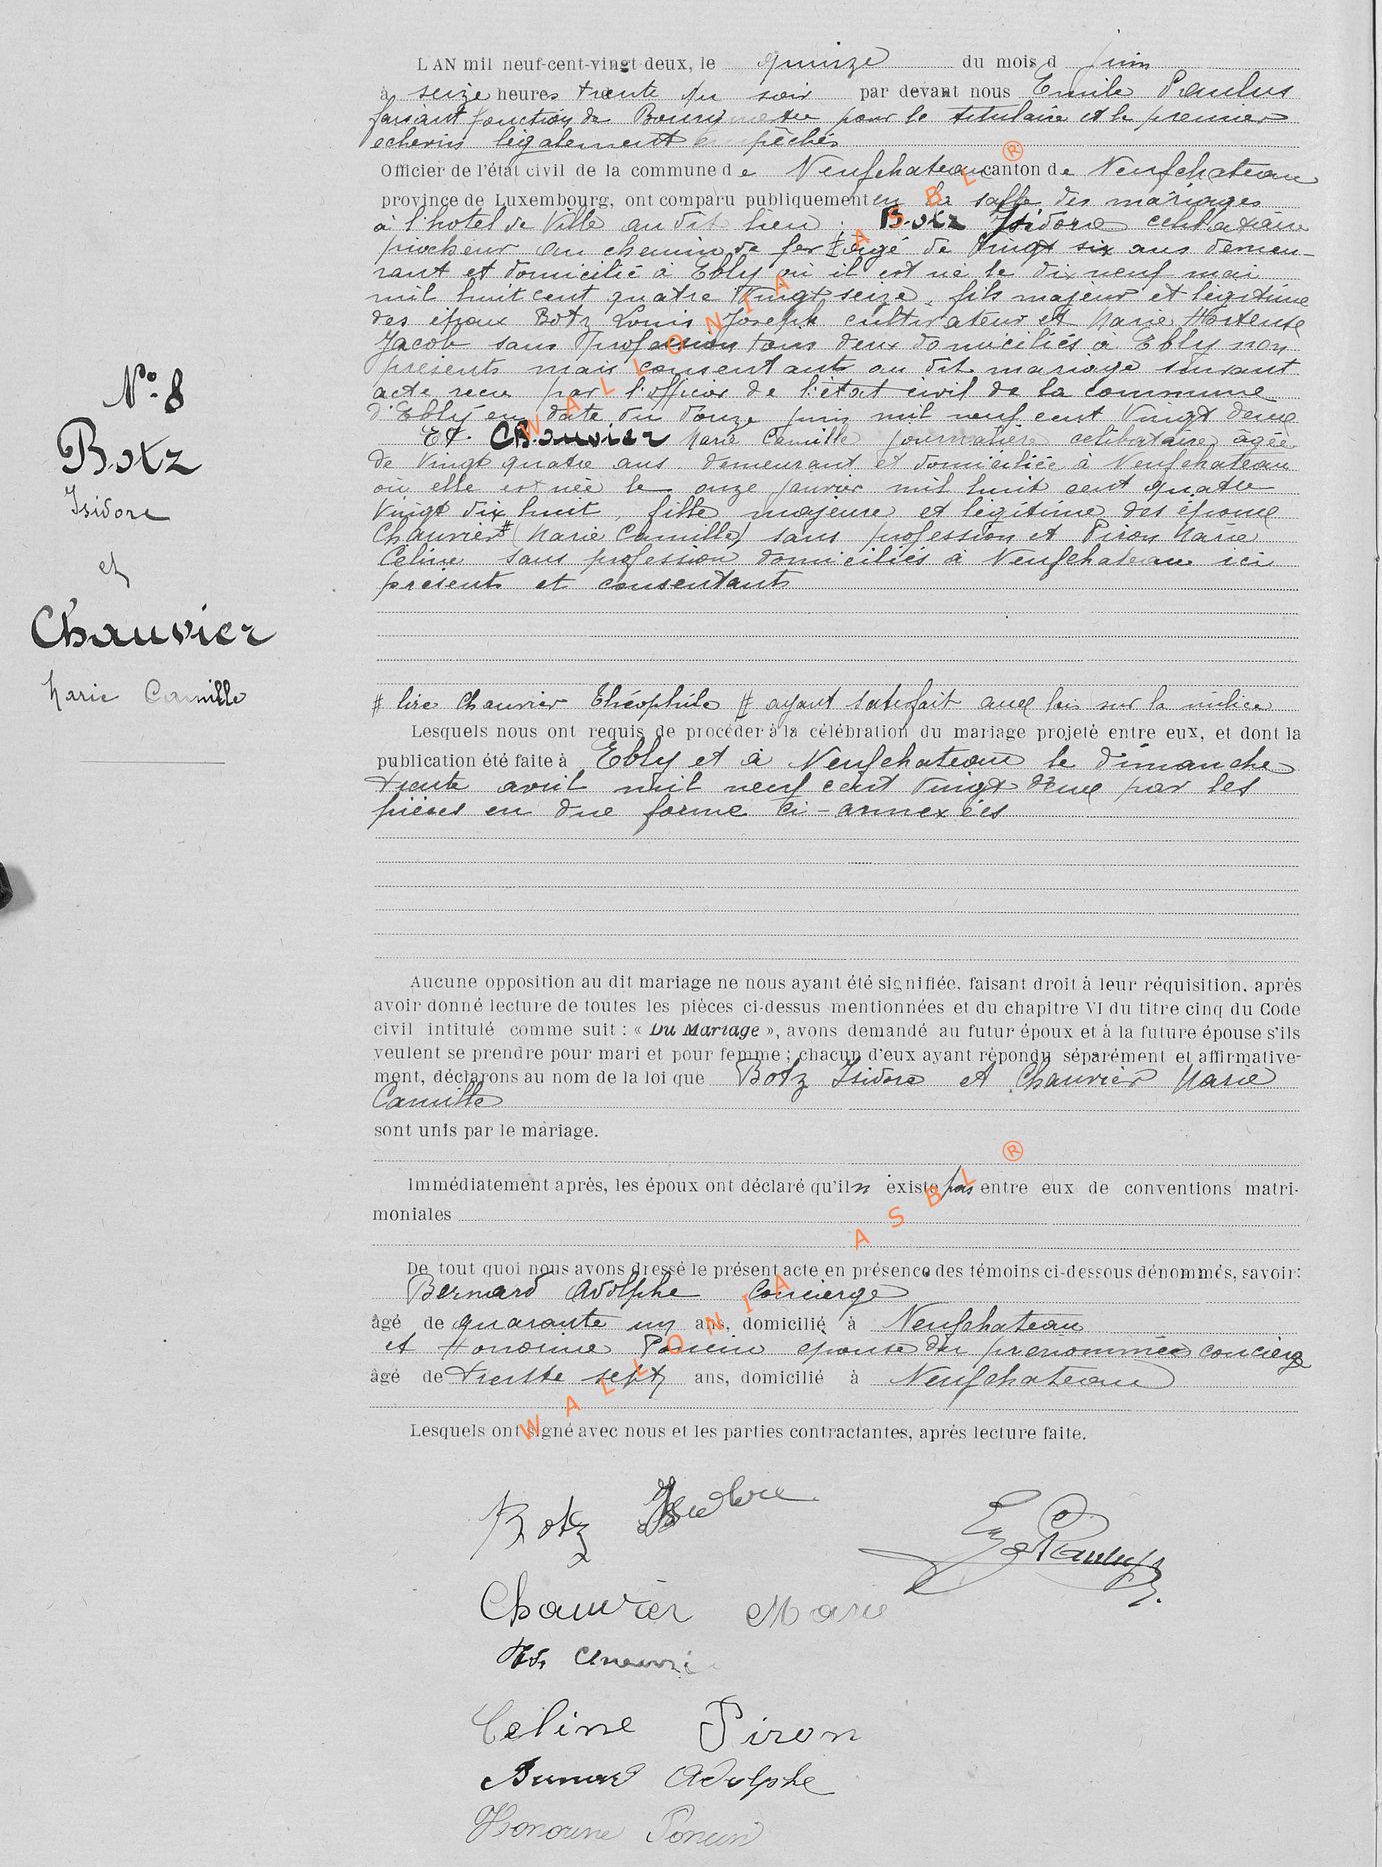 L'AN mil neuf-cent-vingt deux, le quinze du mois d juin
à seize heures trente du soir par devant nous Emile Paulus
faisant fonction de Bourgmestre pour le titulaire et le premier
echevin légalement empêchés
Officier de l'état civil de la commune de Neufchateau canton de Neufchateau
province de Luxembourg, ont comparu publiquement en la salle des mariages
à l'hotel de Ville au dit lieu : Botz Isidore célibataire
piocheur au chemin de fer ⧧ âgé de vingt six ans demeu-
rant et domicilié à Ebly où il est né le dix neuf mai
mil huit cent quatre vingt seize, fils majeur et légitime
des époux Botz Louis Joseph cultivateur et Marie Hortense
Jacob sans profession tous deux domiciliés à Ebly non
présents mais consentants au dit mariage suivant
acte reçu par l'officier de l'état civil de la commune
d'Ebly en date du douze juin mil neuf cent vingt deux
Et. Chauvier Marie Camille journalière célibataire, âgée
de vingt quatre ans demeurant et domiciliée à Neufchateau
où elle est née le onze janvier mil huit cent quatre
vingt dix huit, fille majeure et légitime des époux
Chauvier # (Marie Camille) sans profession et Piron Marie
Celine sans profession domiciliés à Neufchateau ici
présents et consentants
# lire Chauvier Théophile ⧧ ayant satisfait aux lois sur la milice
Lesquels nous ont requis de procéder à la célébration du mariage projeté entre eux, et dont la
publication été faite à Ebly et à Neufchateau le dimanche
trente avril mil neuf cent vingt deux, par les
pièces en due forme ci-annexées
Aucune opposition au dit mariage ne nous ayant été signifiée, faisant droit à leur réquisition, après
avoir donné lecture de toutes les pièces ci-dessus mentionnées et du chapitre VI du titre cinq du Code
civil intitulé comme suit : « Du Mariage », avons demandé au futur époux et à la future épouse s'ils
veulent se prendre pour mari et pour femme ; chacun d'eux ayant répondu séparément et affirmative-
ment, déclarons au nom de la loi que Botz Isidore et Chauvier Marie
Camille
sont unis par le mariage.
Immédiatement après, les époux ont déclaré qu'il n existe pas entre eux de conventions matri-
moniales
De tout quoi nous avons dressé le présent acte en présence des témoins ci-dessous dénommés, savoir:
Bernard Adolphe Concierge
âgé de quarante un ans, domicilié à Neufchateau
et Honorine Poncin épouse du prénommé concierge
âgé de trente sept ans, domicilié à Neufchateau
Lesquels ont signé avec nous et les parties contractantes, après lecture faite.
Botz Isidore
Chauvier Marie
Celine Piron
Bernard Adolphe
Honorine Poncin
N° 8
Botz
Isidore
et
Chauvier
Marie Camille
WALLONIA ASBL ®
WALLONIA ASBL ®